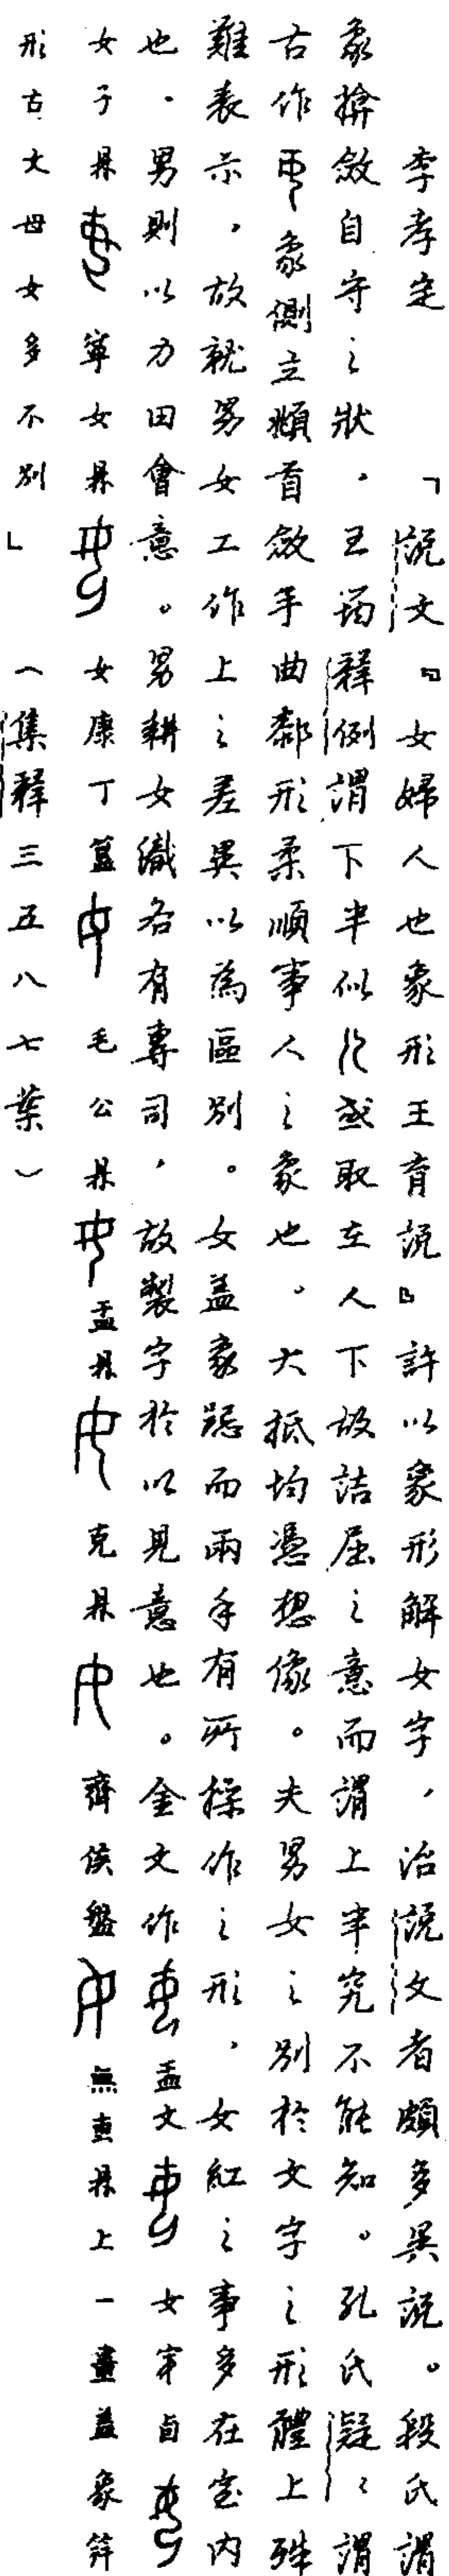 李孝定 「說文『女婦人也象形王育說』許以象形解女字，治說文者頗多異說。段氏謂
象揜斂自守之狀，王筠釋例謂下半似 或取在人下故詰屈之意而謂上半究不能知。孔氏疑疑謂
古作 象側立頫首斂手曲厀形柔順事人之象也。大抵均憑想像。夫男女之別於文字之形體上殊
難表示，故就男女工作上之差異以為區別。女蓋象跽而兩手有所操作之形，女紅之事多在室內
也，男則以力田會意。男耕女織各有專司，故製字於以見意也。金文作 盂文 女 卣
女子鼎 甯女鼎 女康丁簋 毛公鼎 盂鼎 克鼎 齊侯盤 無叀鼎上一畫蓋象笄
形古文母女多不別」（集釋三五八七葉）